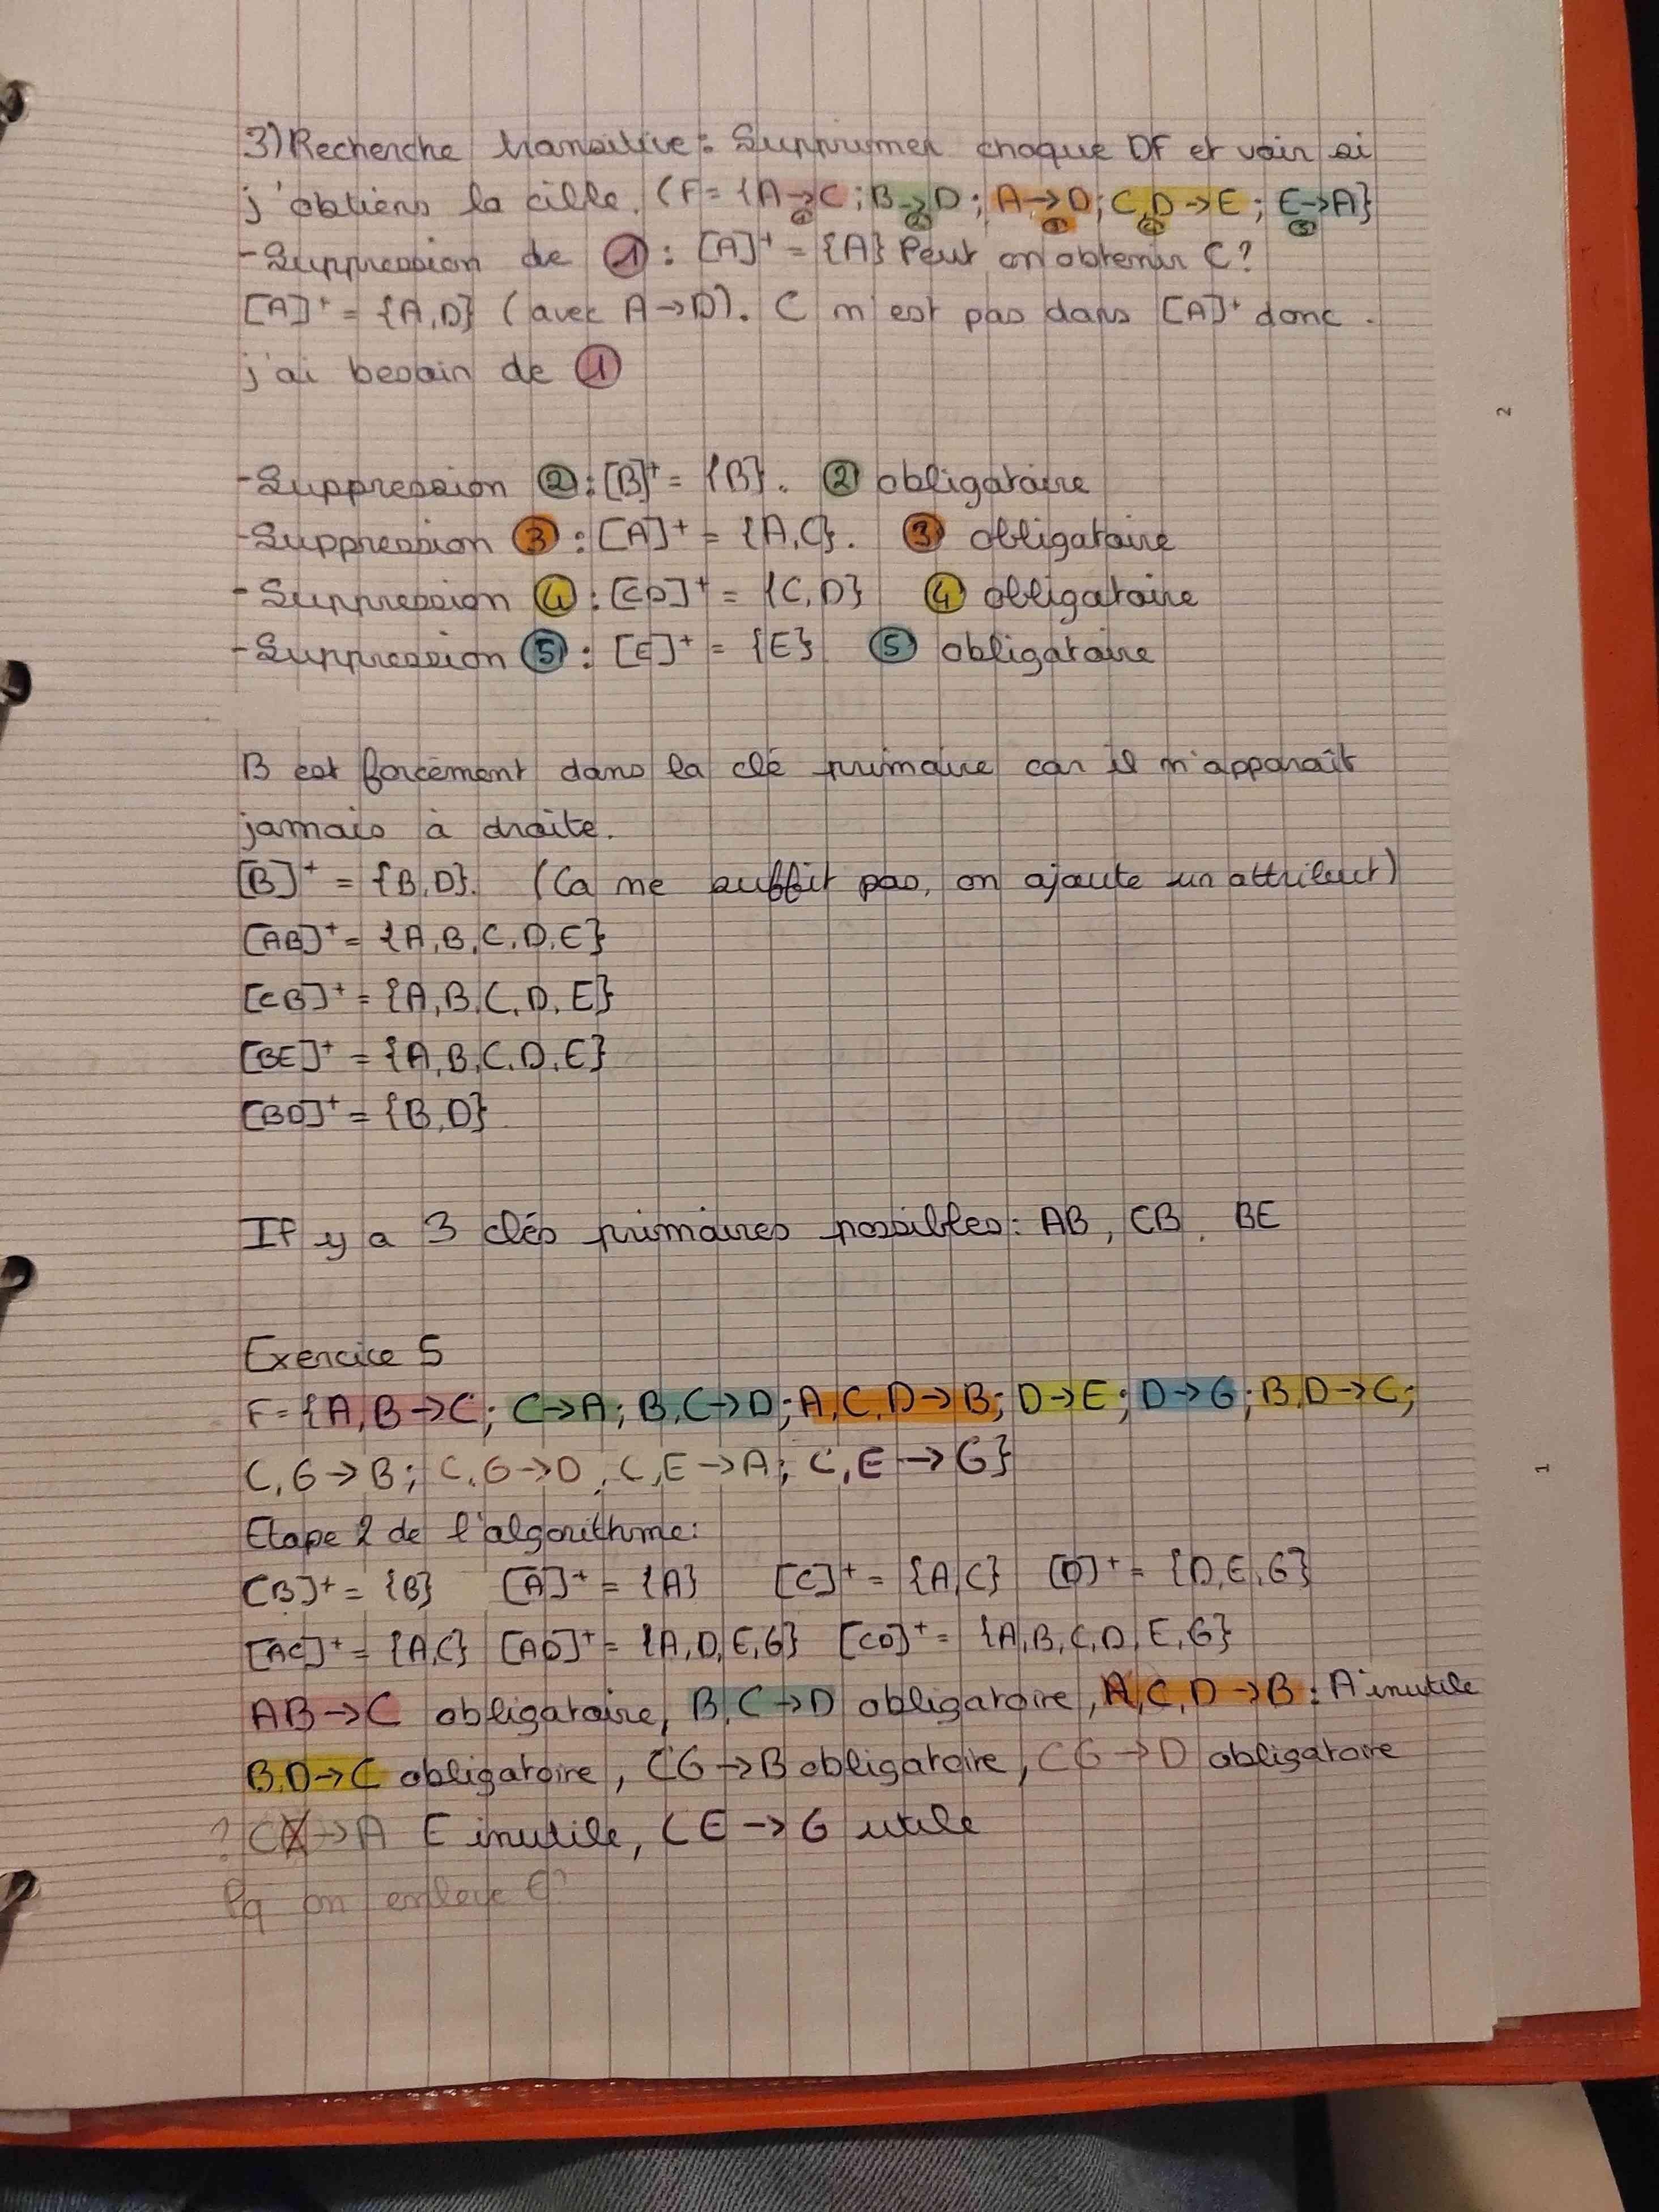 3) Recherche transitive : Supprimer chaque DF et voir si
j'obtiens la cible. (F = {A→C ; B→D ; A→D ; C,D→E ; E→A}
① ② ③ ④ ⑤
- Suppression de ① : [A]⁺ = {A} Peut on obtenir C ?
[A]⁺ = {A,D} (avec A→D). C n'est pas dans [A]⁺ donc
j'ai besoin de ①
2
- Suppression ② : [B]⁺ = {B}. ② obligatoire
- Suppression ③ : [A]⁺ = {A,C}. ③ obligatoire
- Suppression ④ : [CD]⁺ = {C,D} ④ obligatoire
- Suppression ⑤ : [E]⁺ = {E} ⑤ obligatoire
B est forcément dans la clé primaire car il n'apparaît
jamais à droite.
[B]⁺ = {B,D}. (Ca ne suffit pas, on ajoute un attribut)
[AB]⁺ = {A,B,C,D,E}
[CB]⁺ = {A,B,C,D,E}
[BE]⁺ = {A,B,C,D,E}
[BD]⁺ = {B,D}
Il y a 3 clés primaires possibles : AB, CB, BE
Exercice 5
F = {A,B→C ; C→A ; B,C→D ; A,C,D→B ; D→E ; D→G ; B,D→C ;
C,G→B ; C,G→D, C,E→A ; C,E→G}
1
Etape 2 de l'algorithme :
[B]⁺ = {B} [A]⁺ = {A} [C]⁺ = {A,C} [D]⁺ = {D,E,G}
[AC]⁺ = {A,C} [AD]⁺ = {A,D,E,G} [CD]⁺ = {A,B,C,D,E,G}
AB→C obligatoire, B,C→D obligatoire, A,C,D→B : A inutile
B,D→C obligatoire, CG→B obligatoire, CG→D obligatoire
? CE→A E inutile, CE→G utile
Pq on enlève E ?